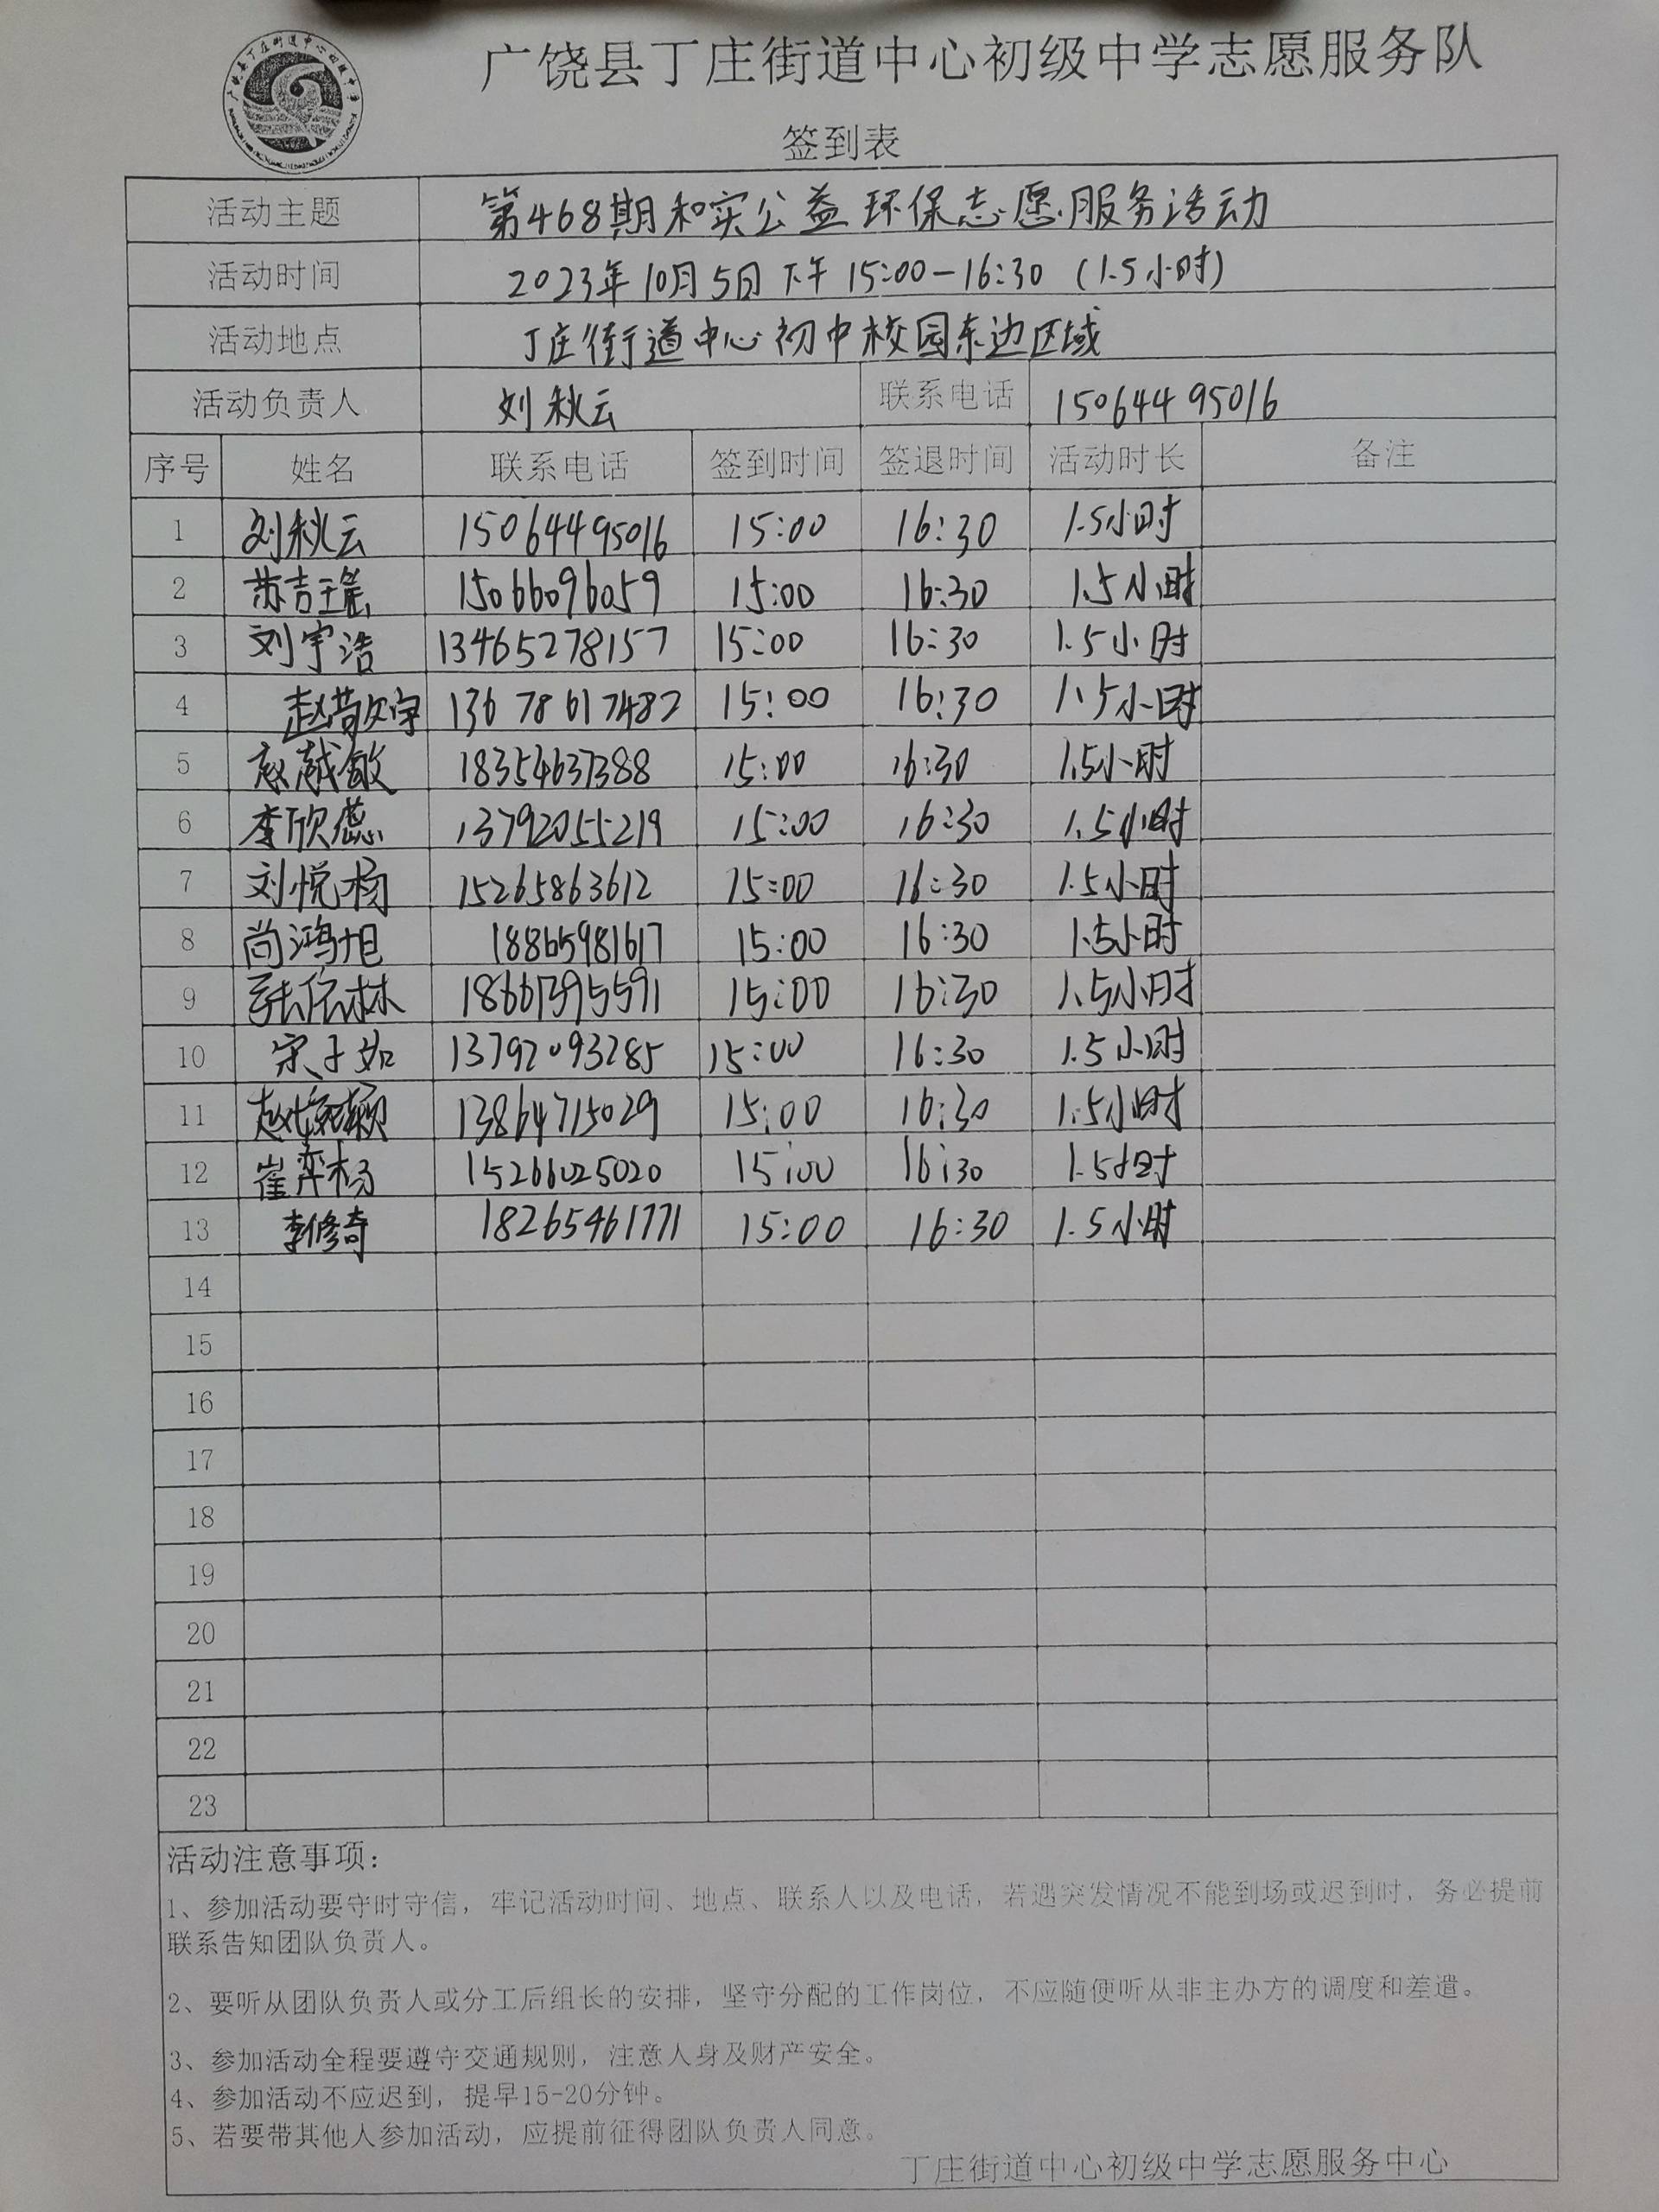 广饶县丁庄街道中心初级中学志愿服务队
签到表
活动主题 第468期和实公益环保志愿服务活动
活动时间 2023年10月5日下午15:00-16:30(1.5小时)
活动地点 丁庄街道中心初中校园东边区域
活动负责人 刘秋云 联系电话 15064495016
序号 姓名 联系电话 签到时间 签退时间 活动时长 备注
1 刘秋云 15064495016 15:00 16:30 1.5小时
2 苏吉瑶 15066096059 15:00 16:30 1.5小时
3 刘宇浩 13465278157 15:00 16:30 1.5小时
4 13678617482 15:00 16:30 1.5小时
5 赵越敏 18354637388 15:00 16:30 1.5小时
6 李欣蕊 13792055219 15:00 16:30 1.5小时
7 刘悦杨 15265863612 15:00 16:30 1.5小时
8 尚鸿旭 18865981617 15:00 16:30 1.5小时
9 张依林 15:00 16:30 1.5小时
10 宋子如 13792093285 15:00 16:30 1.5小时
11 13864715029 15:00 16:30 1.5小时
12 崔弈杨 15266025020 15:00 16:30 1.5小时
13 李修奇 18265461771 15:00 16:30 1.5小时
14
15
16
17
18
19
20
21
22
23
活动注意事项:
1、参加活动要守时守信,牢记活动时间、地点、联系人以及电话,若遇突发情况不能到场或迟到时,务必提前
联系告知团队负责人。
2、要听从团队负责人或分工后组长的安排,坚守分配的工作岗位,不应随便听从非主办方的调度和差遣。
3、参加活动全程要遵守交通规则,注意人身及财产安全。
4、参加活动不应迟到,提早15-20分钟。
5、若要带其他人参加活动,应提前征得团队负责人同意。
丁庄街道中心初级中学志愿服务中心